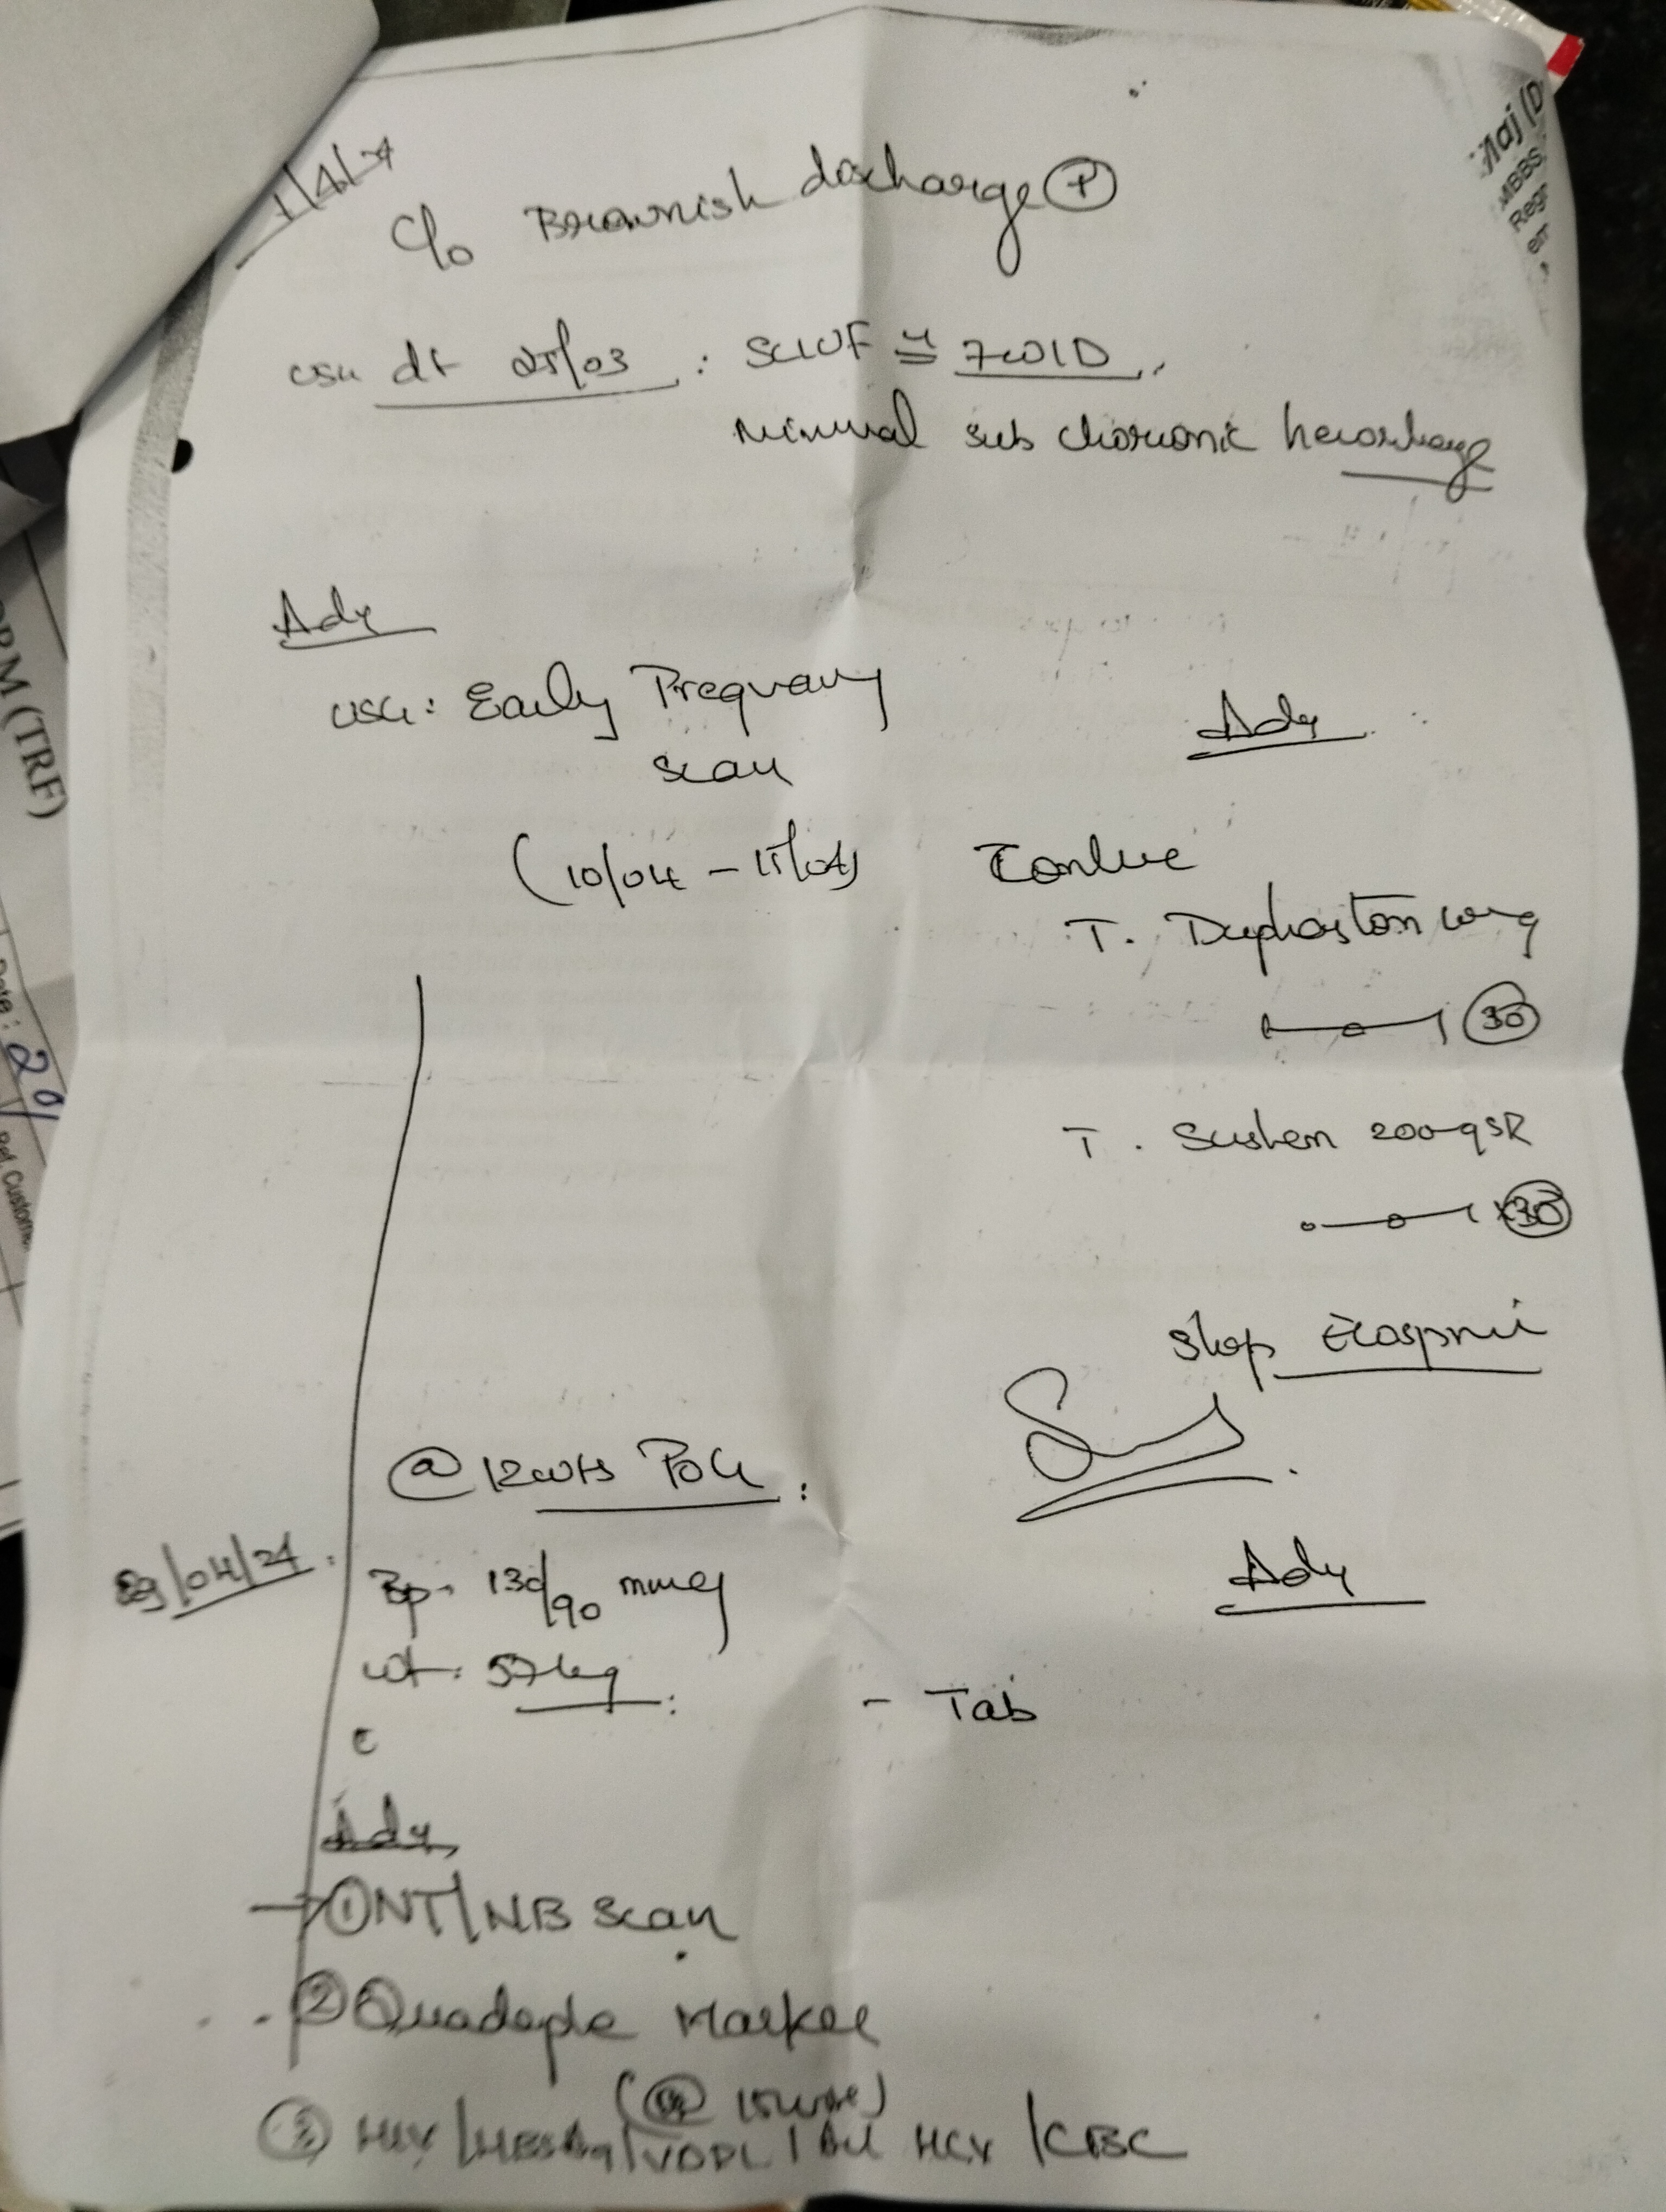 1/4/24
C/o Brownish discharge (+)
USG dt 25/03 : SLIUF ≅ 7W1D
Minimal sub chorionic hemorrhage
Adv
USG: Early Pregnancy
Scan
(10/04 - 15/04)
Adv
Continue
T. Duphaston 10mg
1—o—1 (30)
T. Susten 200mg SR
o—o—1 x(30)
Stop Ecosprin
@ 12wks POG
29/04/24
BP- 130/90 mmHg
wt: 57kg
Adv
- Tab
Adv
→ ① NT/NB Scan
② Quadruple Marker
(@ 15wks)
③ HIV/HBsAg/VDRL/Anti HCV/CBC
Maj (D
MBBS,
Reg
em
ORM (TRF)
Date : 29/
Ref. Custome